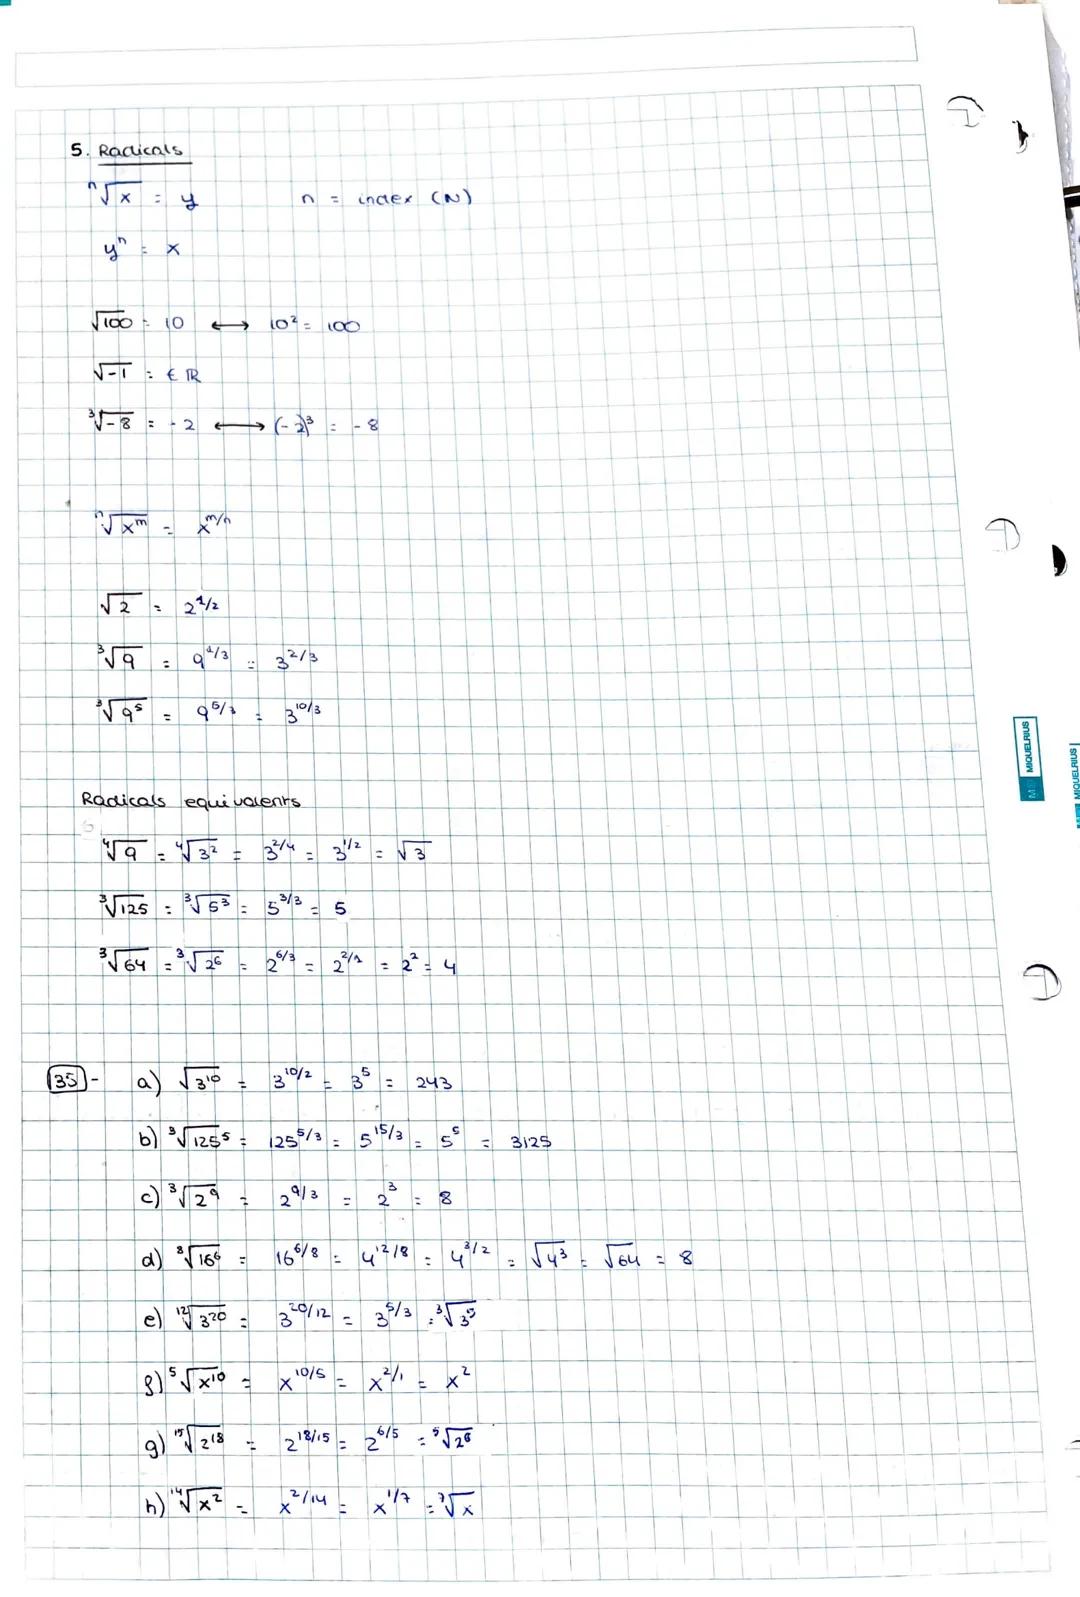 5. Radicals
ⁿ√x = y n = index (N)
yⁿ = x
√100 = 10 ⟷ 10² = 100
√-1 = € ℝ
³√-8 = -2 ⟷ (-2)³ = -8
ⁿ√xᵐ = x^m/n
√2 = 2^1/2
³√9 = 9^1/3 = 3^2/3
³√9⁵ = 9^5/3 = 3^10/3
Radicals equivalents
⁴√9 = ⁴√3² = 3^2/4 = 3^1/2 = √3
³√125 = ³√5³ = 5^3/3 = 5
³√64 = ³√2⁶ = 2^6/3 = 2^2/1 = 2² = 4
35 - a) √3¹⁰ = 3^10/2 = 3⁵ = 243
b) ³√125⁵ = 125^5/3 = 5^15/3 = 5⁵ = 3125
c) ³√2⁹ = 2^9/3 = 2³ = 8
d) ⁸√16⁶ = 16^6/8 = 4^12/8 = 4^3/2 = √4³ = √64 = 8
e) ¹²√3²⁰ = 3^20/12 = 3^5/3 = ³√3⁵
f) ⁵√x¹⁰ = x^10/5 = x^2/1 = x²
g) ¹⁵√2¹⁸ = 2^18/15 = 2^6/5 = ⁵√2⁶
h) ¹⁴√x² = x^2/14 = x^1/7 = ⁷√x
MIQUELRIUS
MIQUELRIUS